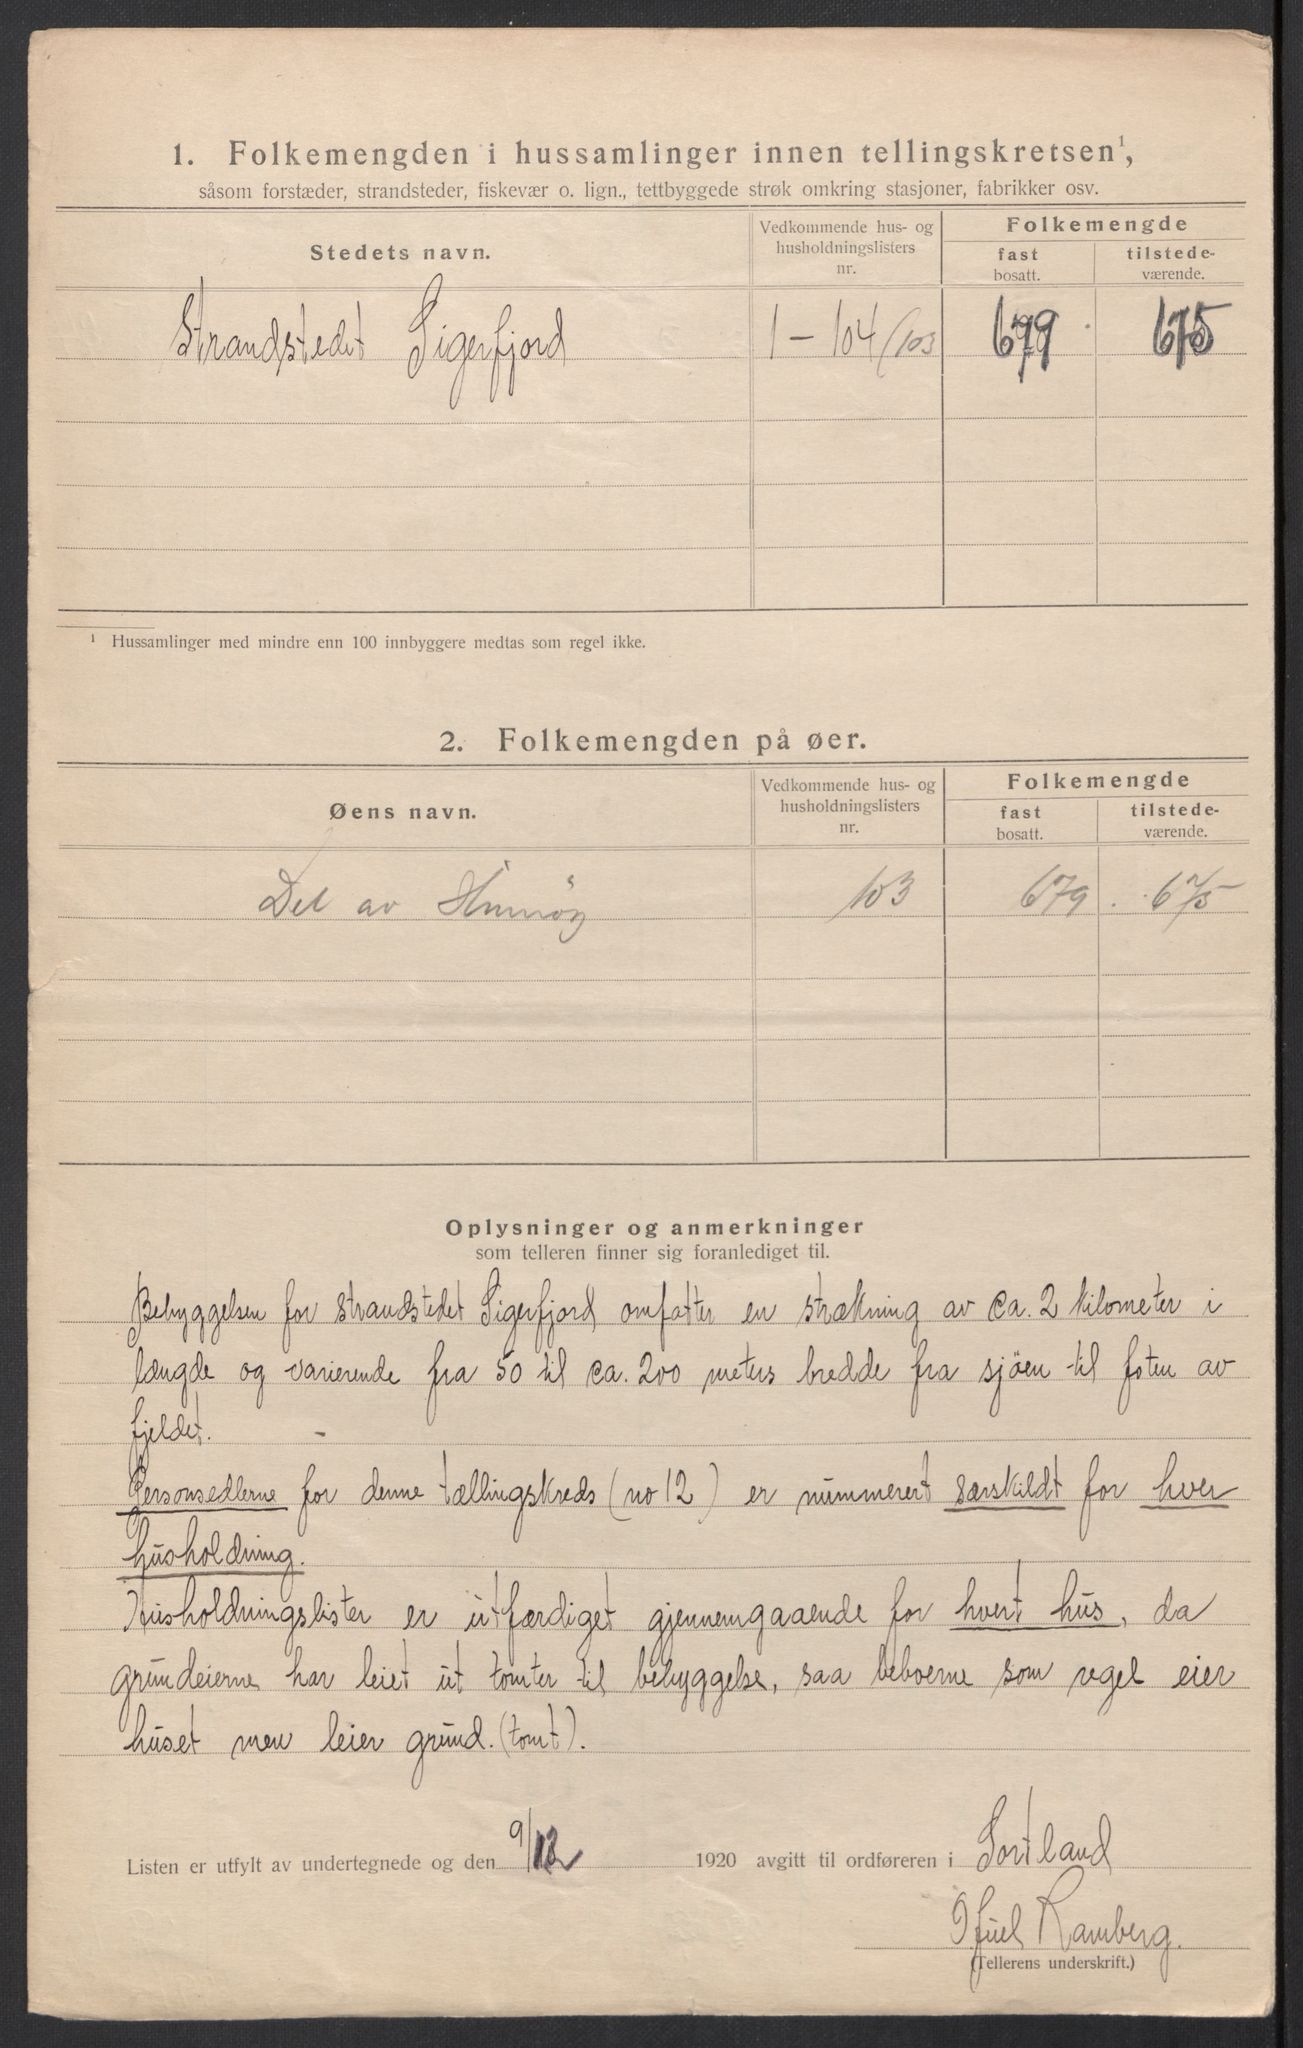 1. Folkemengden i hussamlinger innen tellingskretsen¹,
såsom forstæder, strandsteder, fiskevær o. lign., tettbyggede strøk omkring stasjoner, fabrikker osv.
Stedets navn.
Vedkommende hus- og husholdningslisters nr.
Folkemengde
fast bosatt.
tilstede-værende.
Strandstedet Sigerfjord 1 – 104/103 679 675
¹ Hussamlinger med mindre enn 100 innbyggere medtas som regel ikke.
2. Folkemengden på øer.
Øens navn.
Vedkommende hus- og husholdningslisters nr.
Folkemengde
fast bosatt.
tilstede-værende.
Del av Hinnöy 103 679 . 675
Oplysninger og anmerkninger
som telleren finner sig foranlediget til.
Bebyggelsen for strandstedet Sigerfjord omfatter en strækning av ca. 2 kilometer i
længde og varierende fra 50 til ca. 200 meters bredde fra sjöen til foten av
fjeldet. –
Personsedlerne for denne tællingskreds (no 12) er nummerert særskildt for hver
husholdning.
Husholdningslister er utfærdiget gjennemgaaende for hvert hus, da
grundeierne har leiet ut tomter til bebyggelse, saa beboerne som regel eier
huset men leier grund. (tomt).
Listen er utfylt av undertegnede og den 9/12 1920 avgitt til ordføreren i Sortland
Ramberg.
(Tellerens underskrift.)